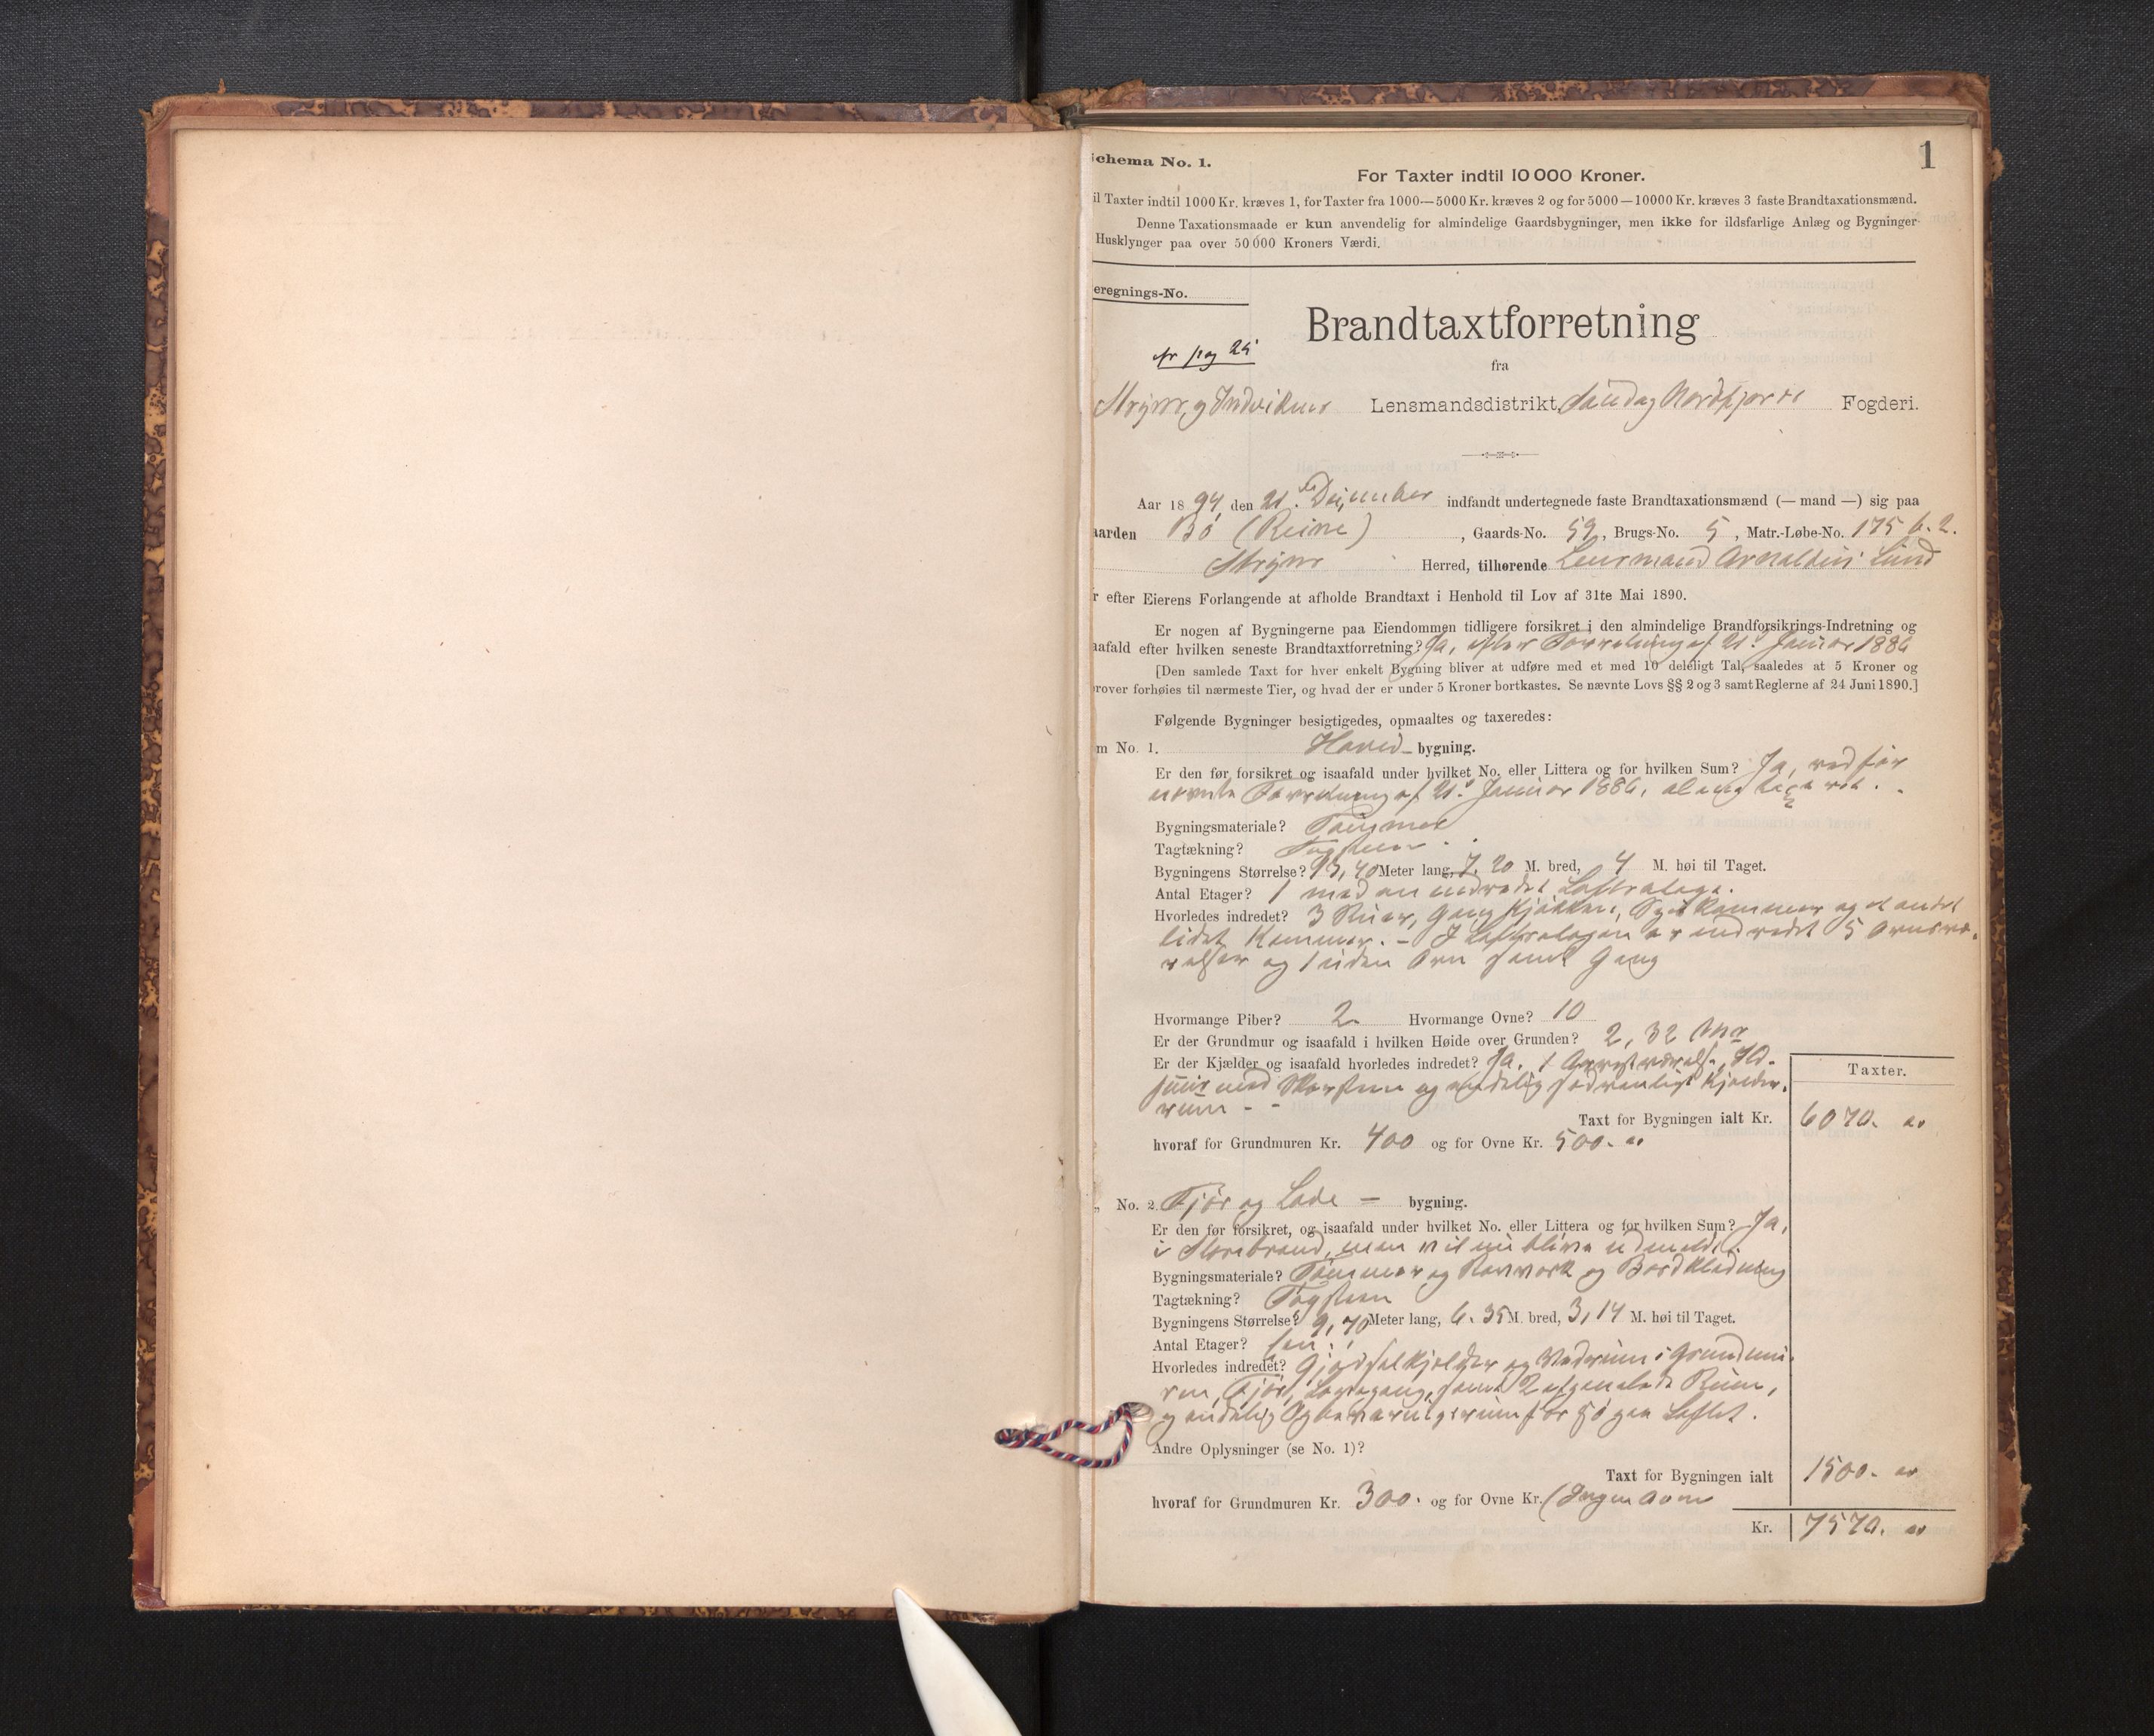 1
chema No. 1.
For Taxter indtil 10 000 Kroner.
il Taxter indtil 1000 Kr. kræves 1, for Taxter fra 1000—5000 Kr. kræves 2 og for 5000—10000 Kr. kræves 3 faste Brandtaxationsmænd.
Denne Taxationsmaade er kun anvendelig for almindelige Gaardsbygninger, men ikke for ildsfarlige Anlæg og Bygninger
Husklynger paa over 50 000 Kroners Værdi.
eregnings-No.
Brandtaxtforretning
pag 25
fra
Stryns og Indvikens Lensmandsdistrikt, Sønd og Nordfjords Fogderi.
Aar 1894, den 21de December indfandt undertegnede faste Brandtaxationsmænd (— mand —) sig paa
aarden Bö (Reine), Gaards-No. 59, Brugs-No. 5, Matr.-Løbe-No. 175 b. 2.
Stryns Herred, tilhørende Lensmand Arnoldus Lund
r efter Eierens Forlangende at afholde Brandtaxt i Henhold til Lov af 31te Mai 1890.
Er nogen af Bygningerne paa Eiendommen tidligere forsikret i den almindelige Brandforsikrings-Indretning og
aafald efter hvilken seneste Brandtaxtforretning? Ja, efter Forretning af 21. Januar 1886
[Den samlede Taxt for hver enkelt Bygning bliver at udføre med et med 10 deleligt Tal, saaledes at 5 Kroner og
rover forhøies til nærmeste Tier, og hvad der er under 5 Kroner bortkastes. Se nævnte Lovs §§ 2 og 3 samt Reglerne af 24 Juni 1890.]
Følgende Bygninger besigtigedes, opmaaltes og taxeredes:
m No. 1. Hoved- bygning.
Er den før forsikret og isaafald under hvilket No. eller Littera og for hvilken Sum? Ja, ved før
nævnte Forretning af 21. Januar 1886,
Bygningsmateriale? Tømmer
Tagtækning? Tagsteen
Bygningens Størrelse? 13,40 Meter lang, 7.20 M. bred, 4 M. høi til Taget.
Antal Etager? 1 med en indredet Loftsetage.
Hvorledes indredet? 3 Stuer, Gang Kjøkken, Spiskammer og et andet
lidet Kammer. - I Loftsetagen er indredet 5 Ovnsvæ-
relser og 1 uden Ovn samt Gang
Hvormange Piber? 2 Hvormange Ovne? 10
Er der Grundmur og isaafald i hvilken Høide over Grunden? 2,32 Mtr
Er der Kjælder og isaafald hvorledes indredet? Ja, 1 Arrestværelse, Ild-
huus med Skorsteen og endelig sædvanligt Kjælder-
rum - -
Taxter.
Taxt for Bygningen ialt Kr. 6070.
hvoraf for Grundmuren Kr. 400 og for Ovne Kr. 500.
No. 2. Fjös og Lade - bygning.
Er den før forsikret, og isaafald under hvilket No. eller Littera og for hvilken Sum? Ja,
i Storebrand, men vil nu blive udmeldt.
Bygningsmateriale? Tömmer og Stavværk og Bordklædning
Tagtækning? Tagsteen
Bygningens Størrelse? 9,70 Meter lang, 6.35 M. bred, 3,14 M. høi til Taget.
Antal Etager? een.
Hvorledes indredet? Gjødselkjelder og Vedrum i Grundmu-
ren, Fjös, Lovegang, samt 2 Rum,
og endelig Opbevaringsrum for Hö paa Loftet.
Andre Oplysninger (se No. 1)?
Taxt for Bygningen ialt 1500.
hvoraf for Grundmuren Kr. 300. og for Ovne Kr. (Ingen Ovne
Kr. 7570.